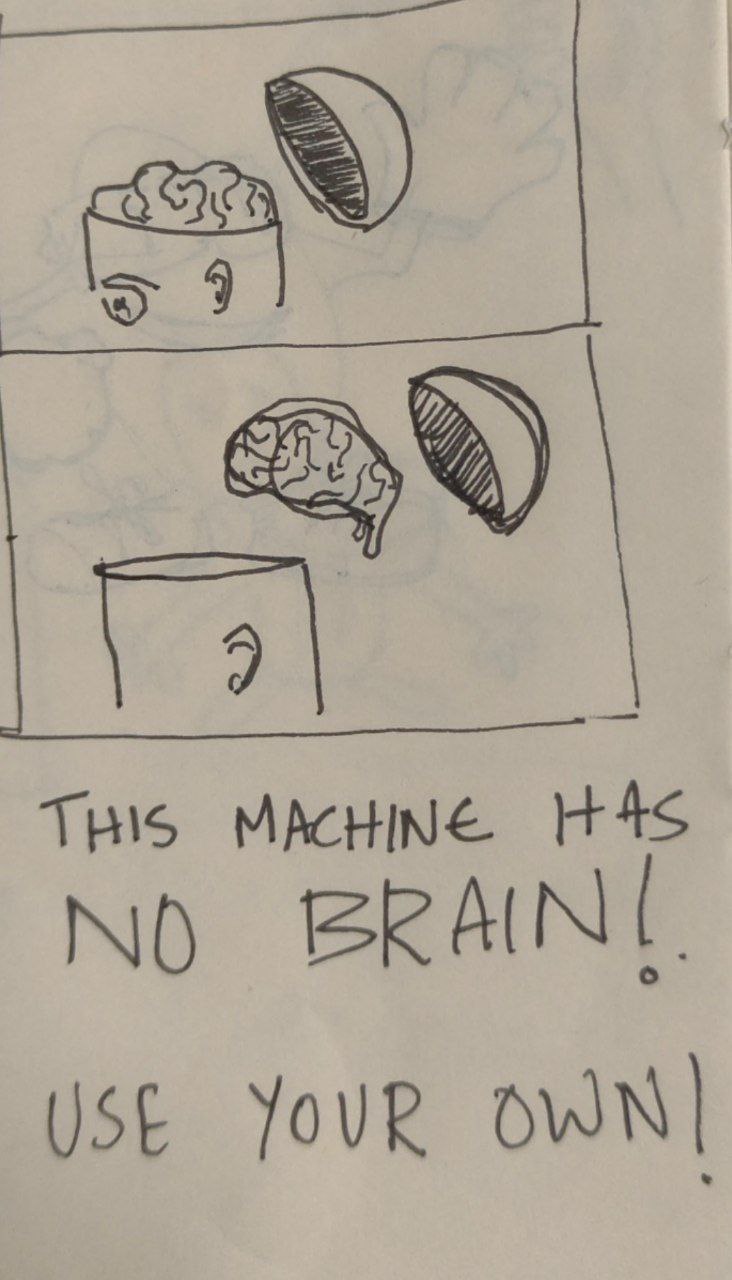 THIS MACHINE HAS
NO BRAIN!
USE YOUR OWN!